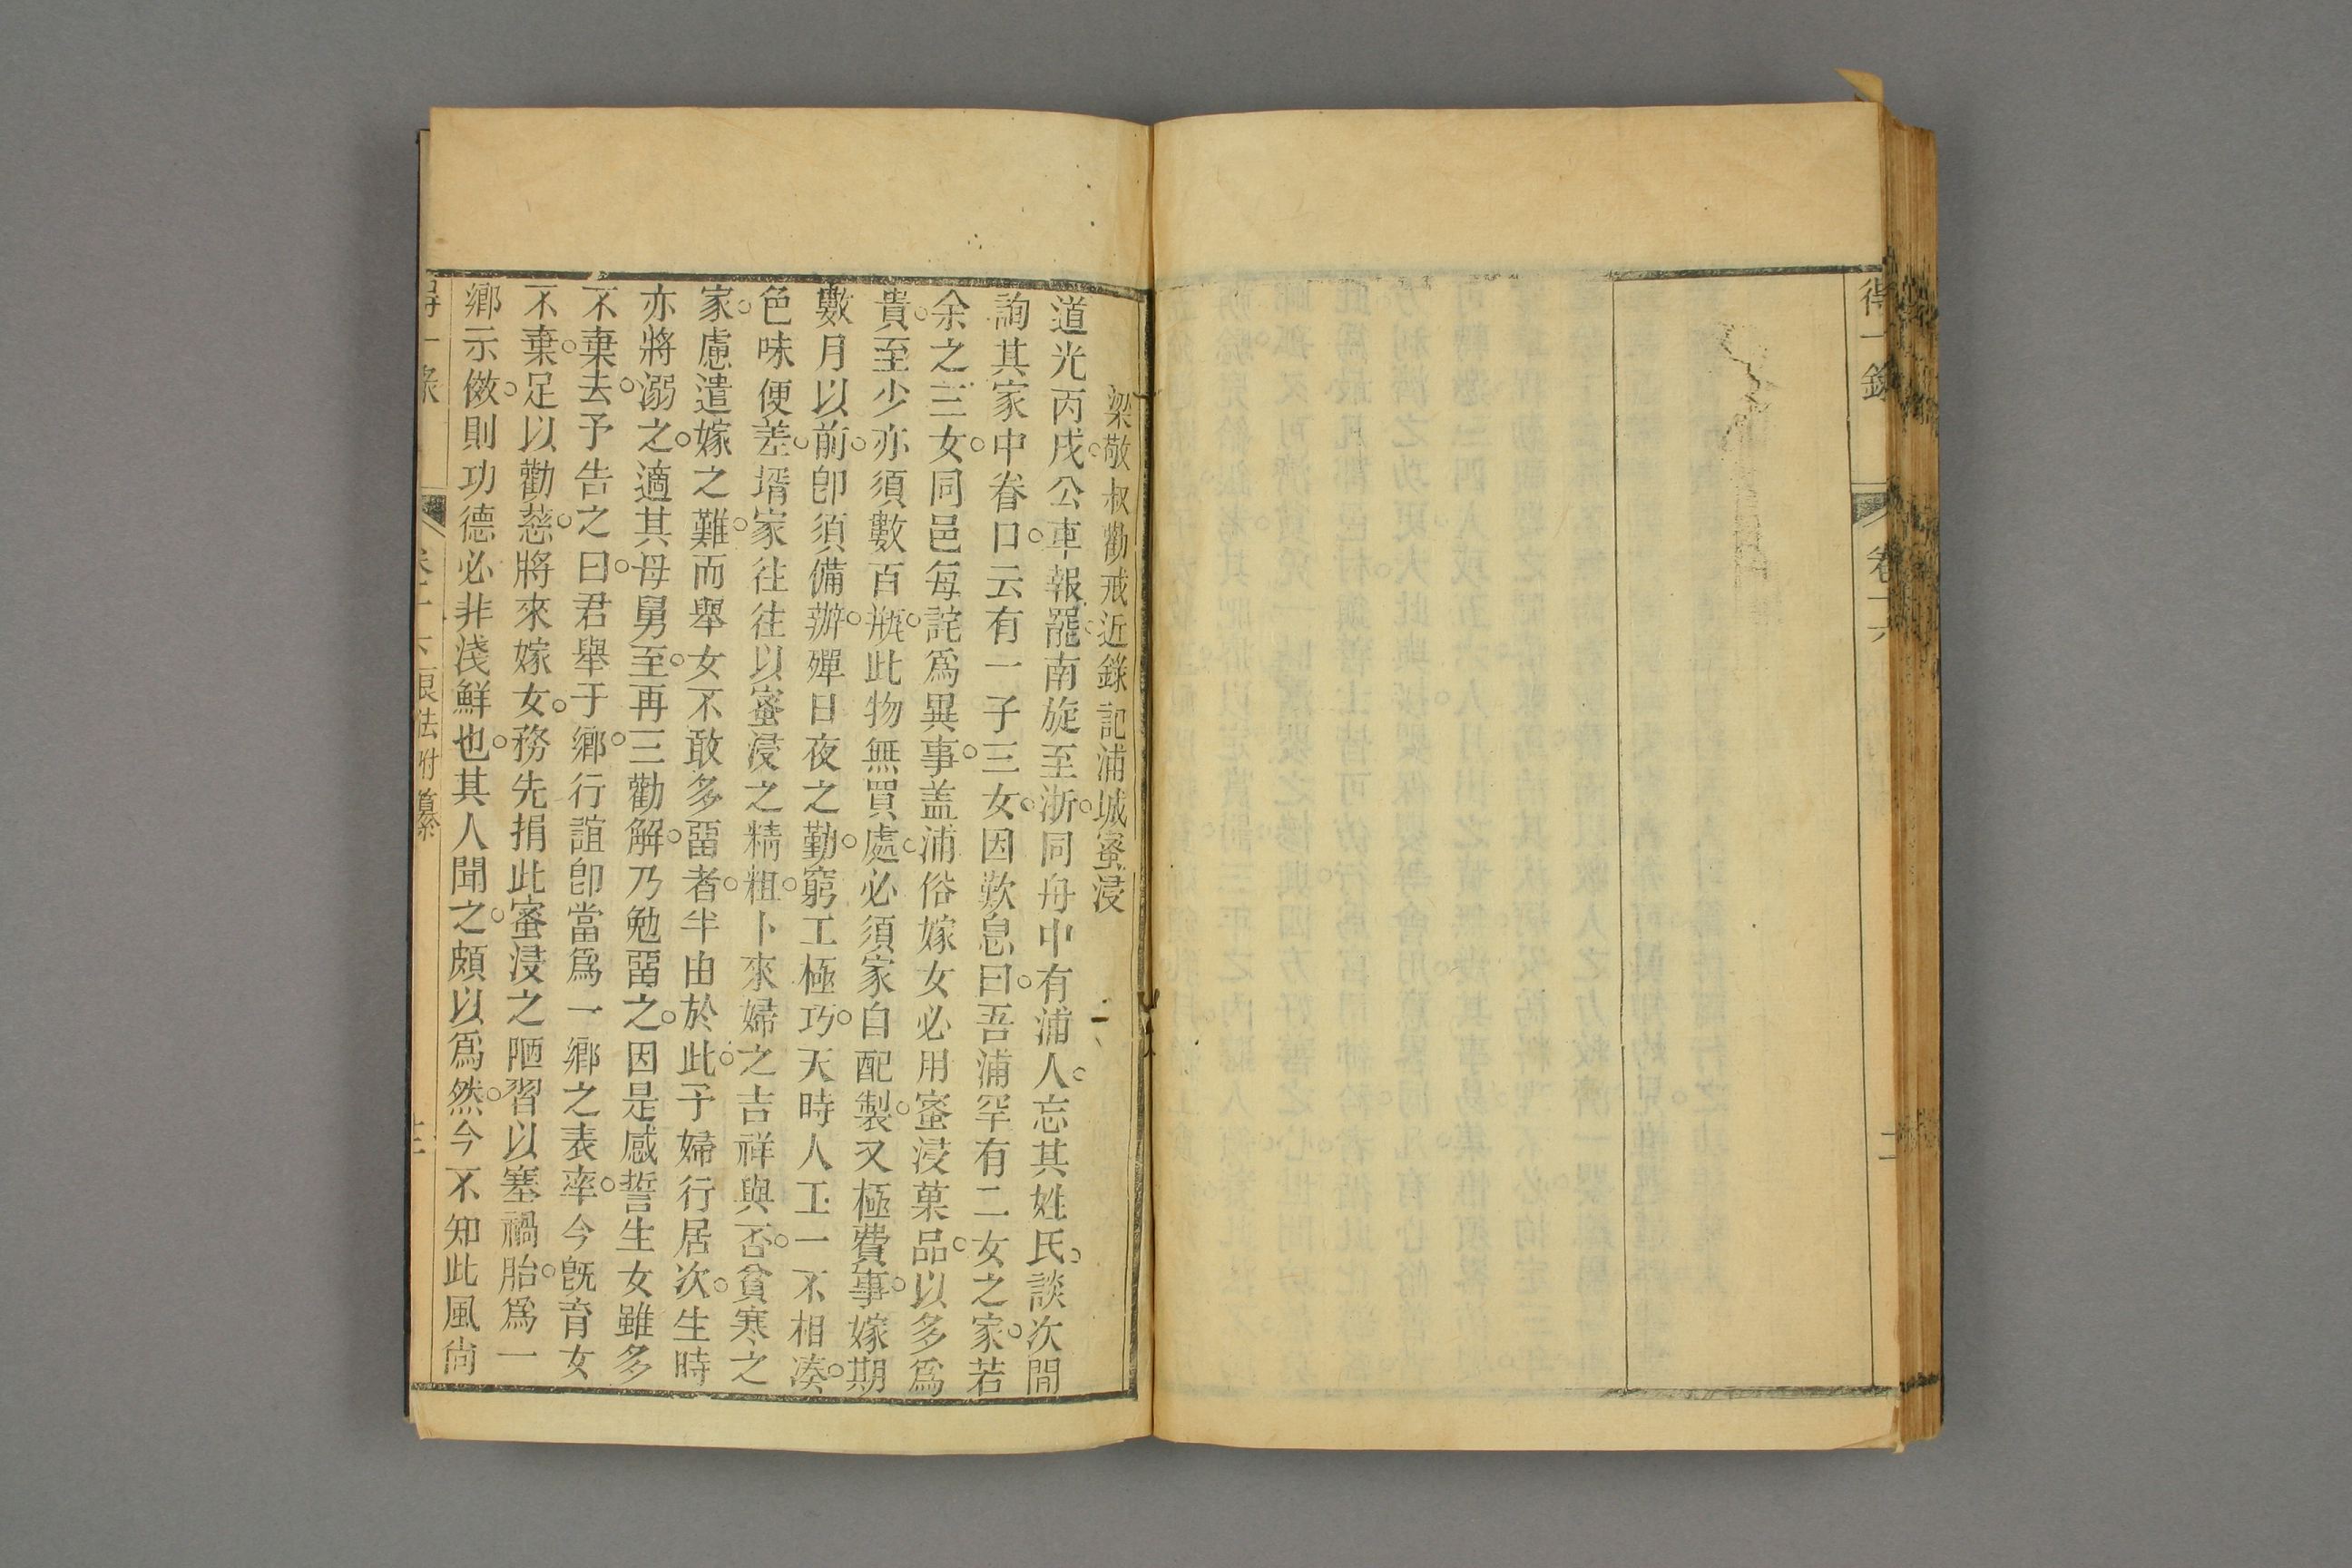 得一錄
卷十六
二
梁敬叔勸戒近錄記浦城蜜浸
道光丙戌。公車報罷。南旋至浙。同舟中有浦人。忘其姓氏。談次間
詢其家中眷口。云有一子三女。因歎息曰。吾浦罕有二女之家。若
余之三女。同邑每詫爲異事。蓋浦俗嫁女必用蜜浸菓品。以多爲
貴。至少亦須數百瓶。此物無買處。必須家自配製。又極費事。嫁期
數月以前。卽須備辦。殫日夜之勤。窮工極巧。天時人工一不相湊。
色味便差。壻家往往以蜜浸之精粗。卜來婦之吉祥與否。貧寒之
家。慮遣嫁之難。而舉女不敢多畱者。半由於此。予婦行居次。生時
亦將溺之。適其母舅至。再三勸解。乃勉畱之。因是感誓生女雖多
不棄去。予告之曰。君舉于鄉。行誼卽當爲一鄉之表率。今旣育女
不棄。足以勸慈。將來嫁女。務先捐此蜜浸之陋習。以塞禍胎。爲一
鄉示儆。則功德必非淺鮮也。其人聞之。頗以爲然。今不知此風尙
得一錄
良法附纂